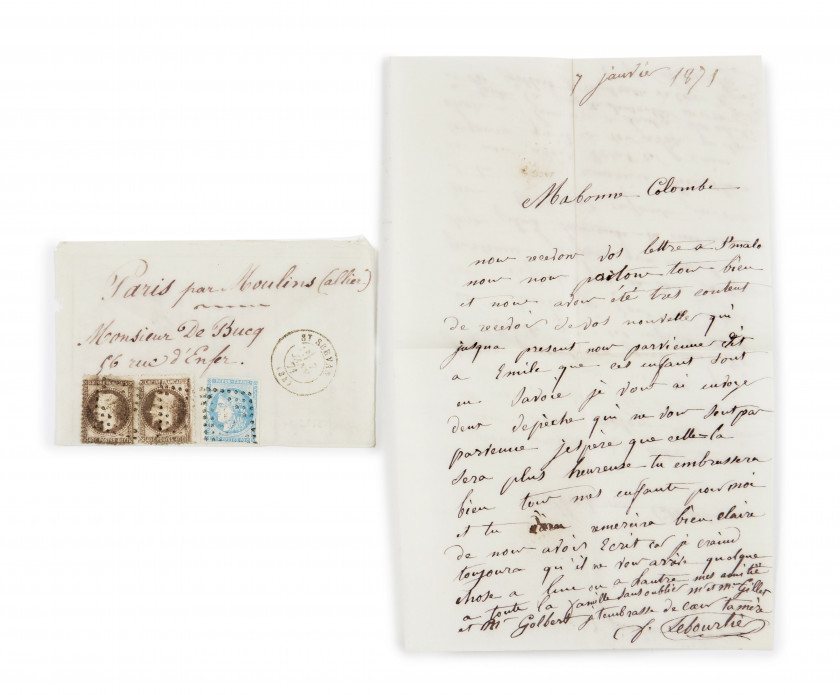 7 janvier 1871
Mabonne Colombe
nous recevon vos lettre a St malo
nous nous portons tous bien
et nous avon été tres content
de recevoir de vos nouvelles qui
jusqua present nous parvienne dit
a Emile que ces enfant sont
en Savoie je vous ai envoye
deux depeche qui ne vous sont pas
parvenue jespère que celle la
sera plus heureuse tu embrassera
bien tous mes enfants pour moi
et tu remercira bien claire
de nous avoir Ecrit car je craind
toujours qu'il ne vous arrive quelque
chose a lune ou a lautre mes amitié
a toute la famille sans oublier Mr et Mme Gillet
et Mr Golbert je tembrasse de cœur ta mère
f. Lebourlier
Paris par Moulins (allier)
Monsieur De Bucq
56 rue d'Enfer.
ST SERVAN